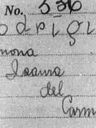 No. 536
odrigi
mona
Juana
del
Carm